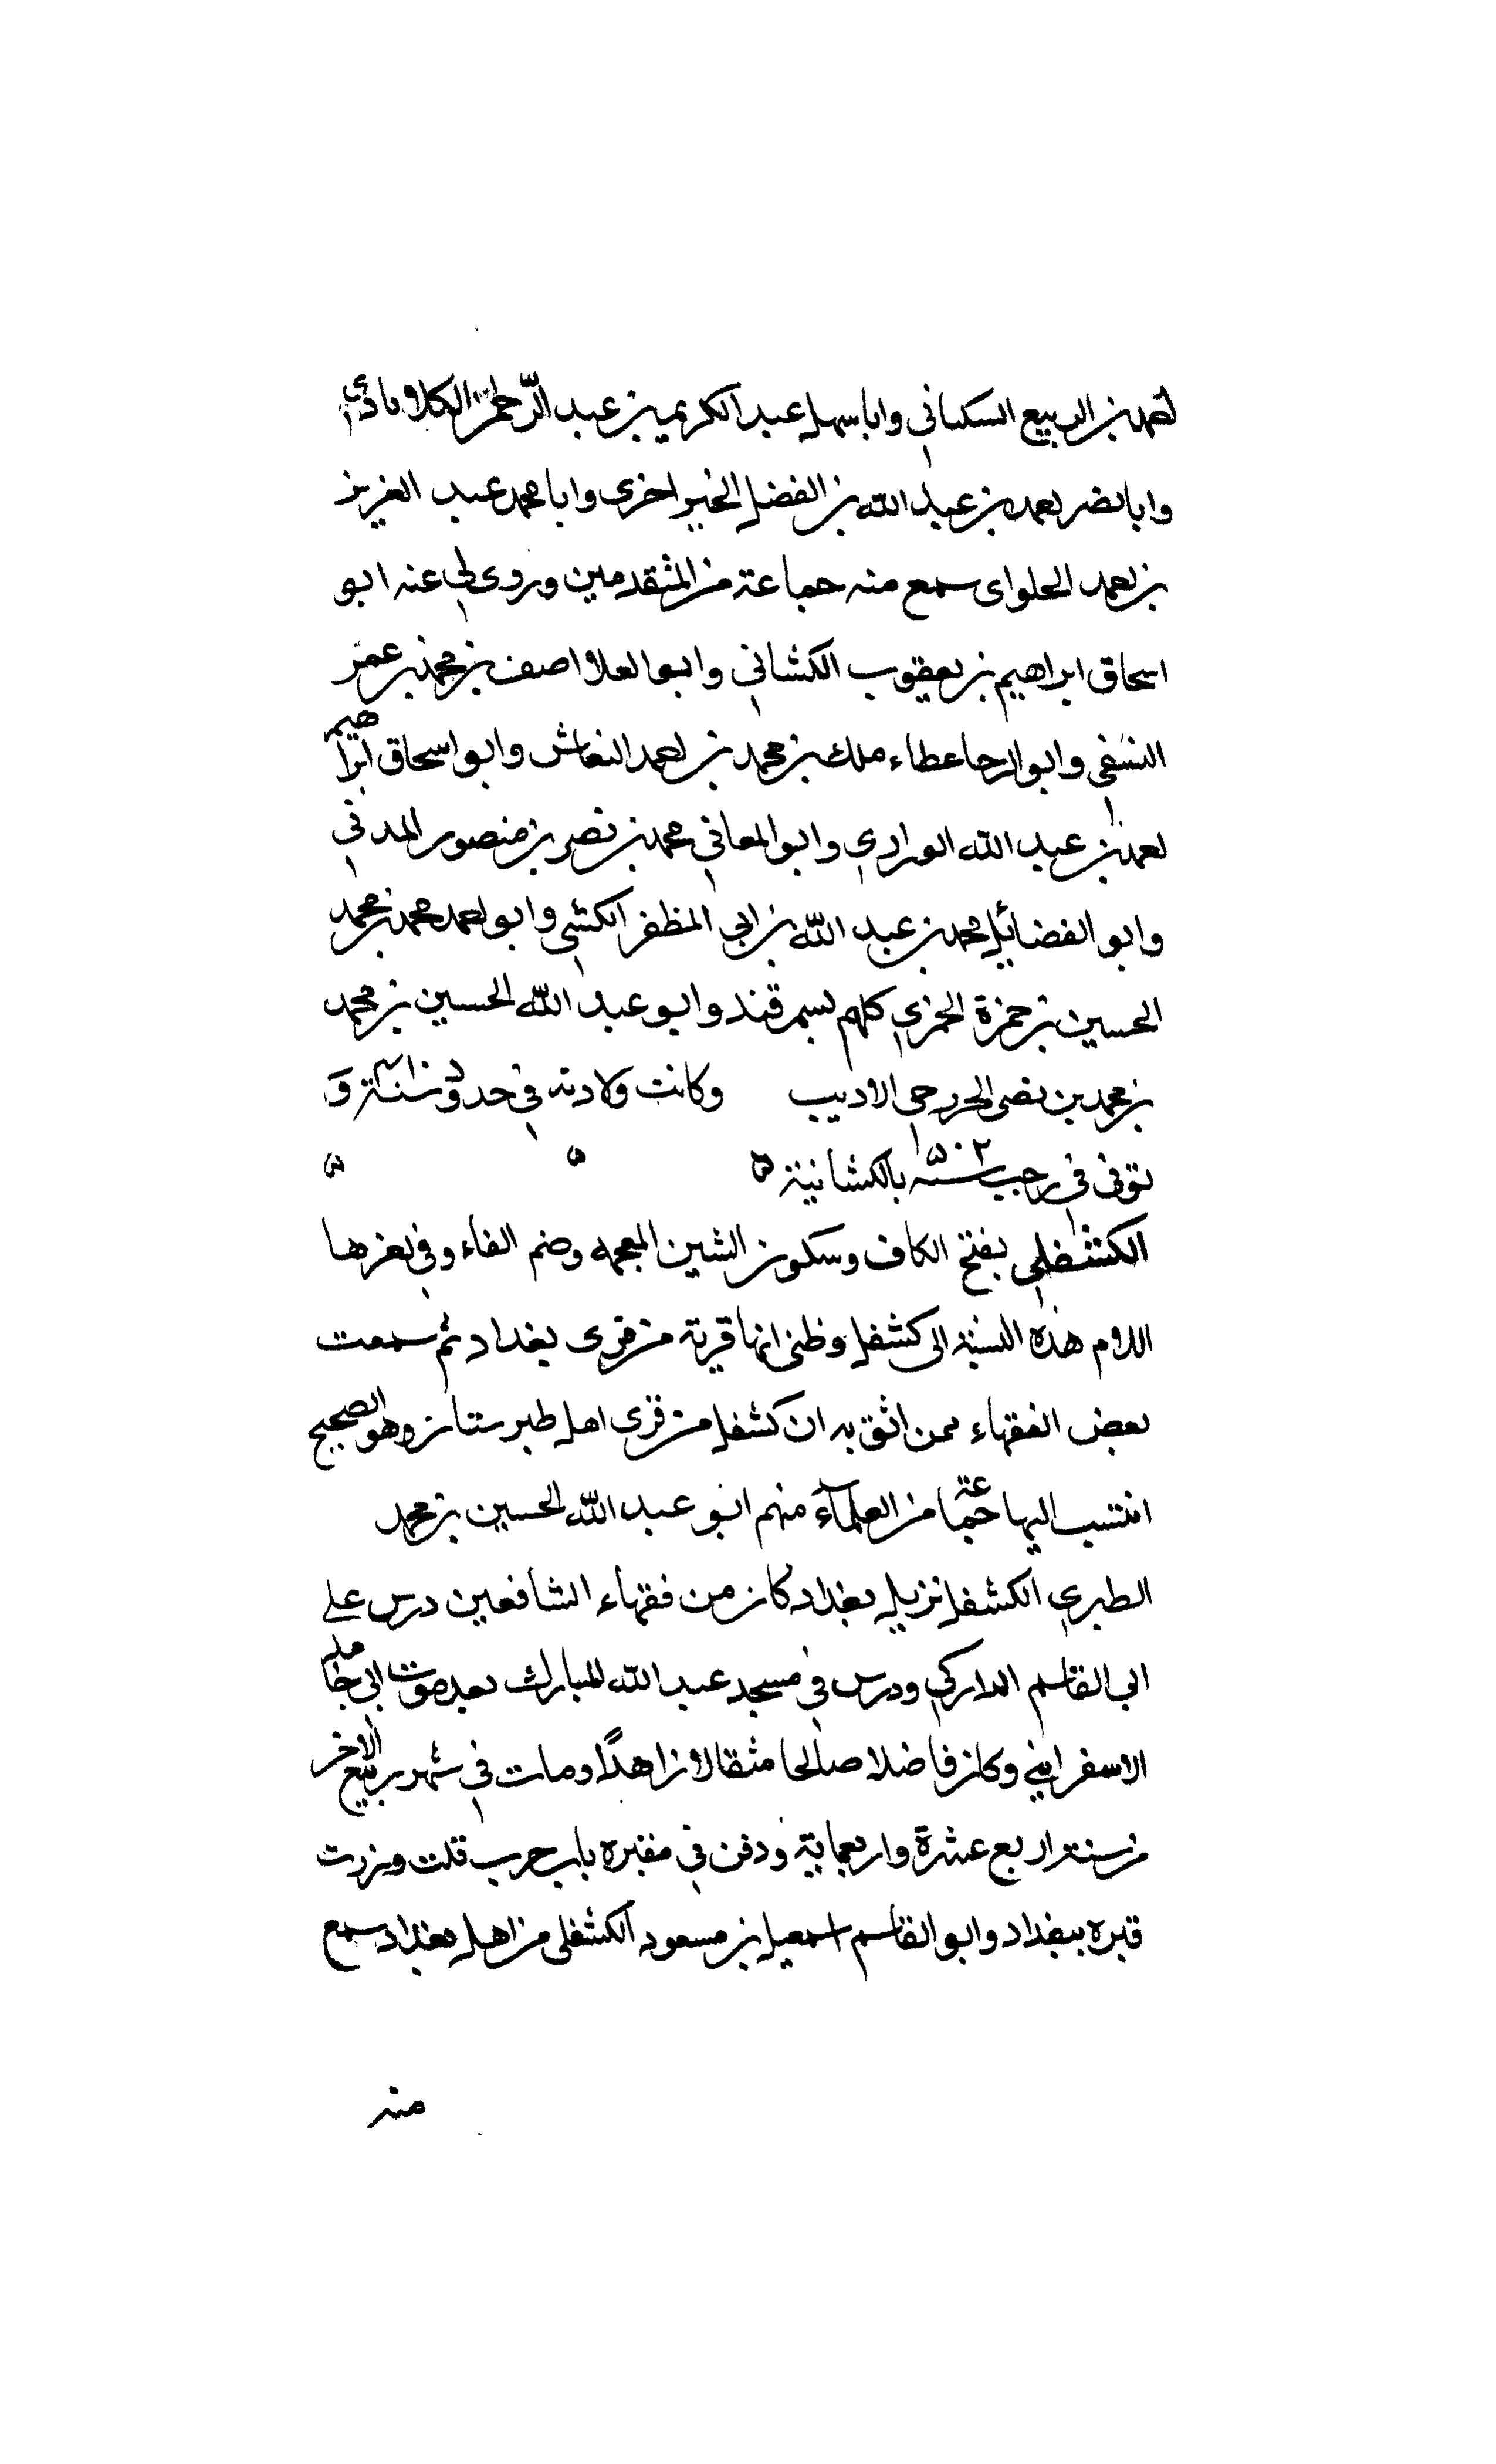 احمد بن الربيع السكساني وابا سهل عبد الكريم بن عبد الرحمن الكلاباذي
وابا نصر احمد بن عبد الله بن الفضل الخيراخزى وابا محمد عبد العزيز
بن احمد الحلواى سمع منه جماعة من المتقدمين وروى لي عنه ابو
اسحاق ابراهيم بن يعقوب الكشاني وابو العلا اصف بن محمد بن عمر
النسفي وابو الرجا عطاء ملك بن محمد بن احمد النقاش وابو اسحاق ابراهيم
احمد بن عبد الله وابو المعاني محمد بن نصر بن منصور المدني
وابو الفضائل محمد بن عبد الله بن ابي المظفر الكشي وابو احمد محمد بن محمد
الحسين بن حمزة الحمزي كلهم بسمرقند وابو عبد الله الحسين بن محمد
بن محمد بن نصر الاديب وكانت ولادته في حدود سنة و
توفى في رجب سنة ٥٠٢ بالكشانية ه ه ه
الكشفلي بفتح الكاف وسكون الشين المعجمه وضم الفاء وفي اخرها
اللام هذه النسبة الى كشفل وظنى انها قرية من قرى بغداد ثم سمعت
بعض الفقهاء ممن اثق به ان كشفل من قرى اهل طبرستان وهو الصحيح
انتسب اليها جماعة من العلماء منهم ابو عبد الله الحسين بن محمد
الطبري الكشفل نزيل بغداد كان من فقهاء الشافعين درس على
ابي القاسم الداركي ودرس في مسجد عبد الله المبارك بعد موت ابي حامد
الاسفرايني وكان فاضلا صالحا متقالا زاهدًا ومات في شهر ربيع الاخر
من سنة اربع عشرة واربعماية ودفن في مقبره باب حرب قلت وزرت
قبره ببغداد وابو القاسم اسمعيل بن مسعود الكشفلي من اهل بغداد سمع
منه